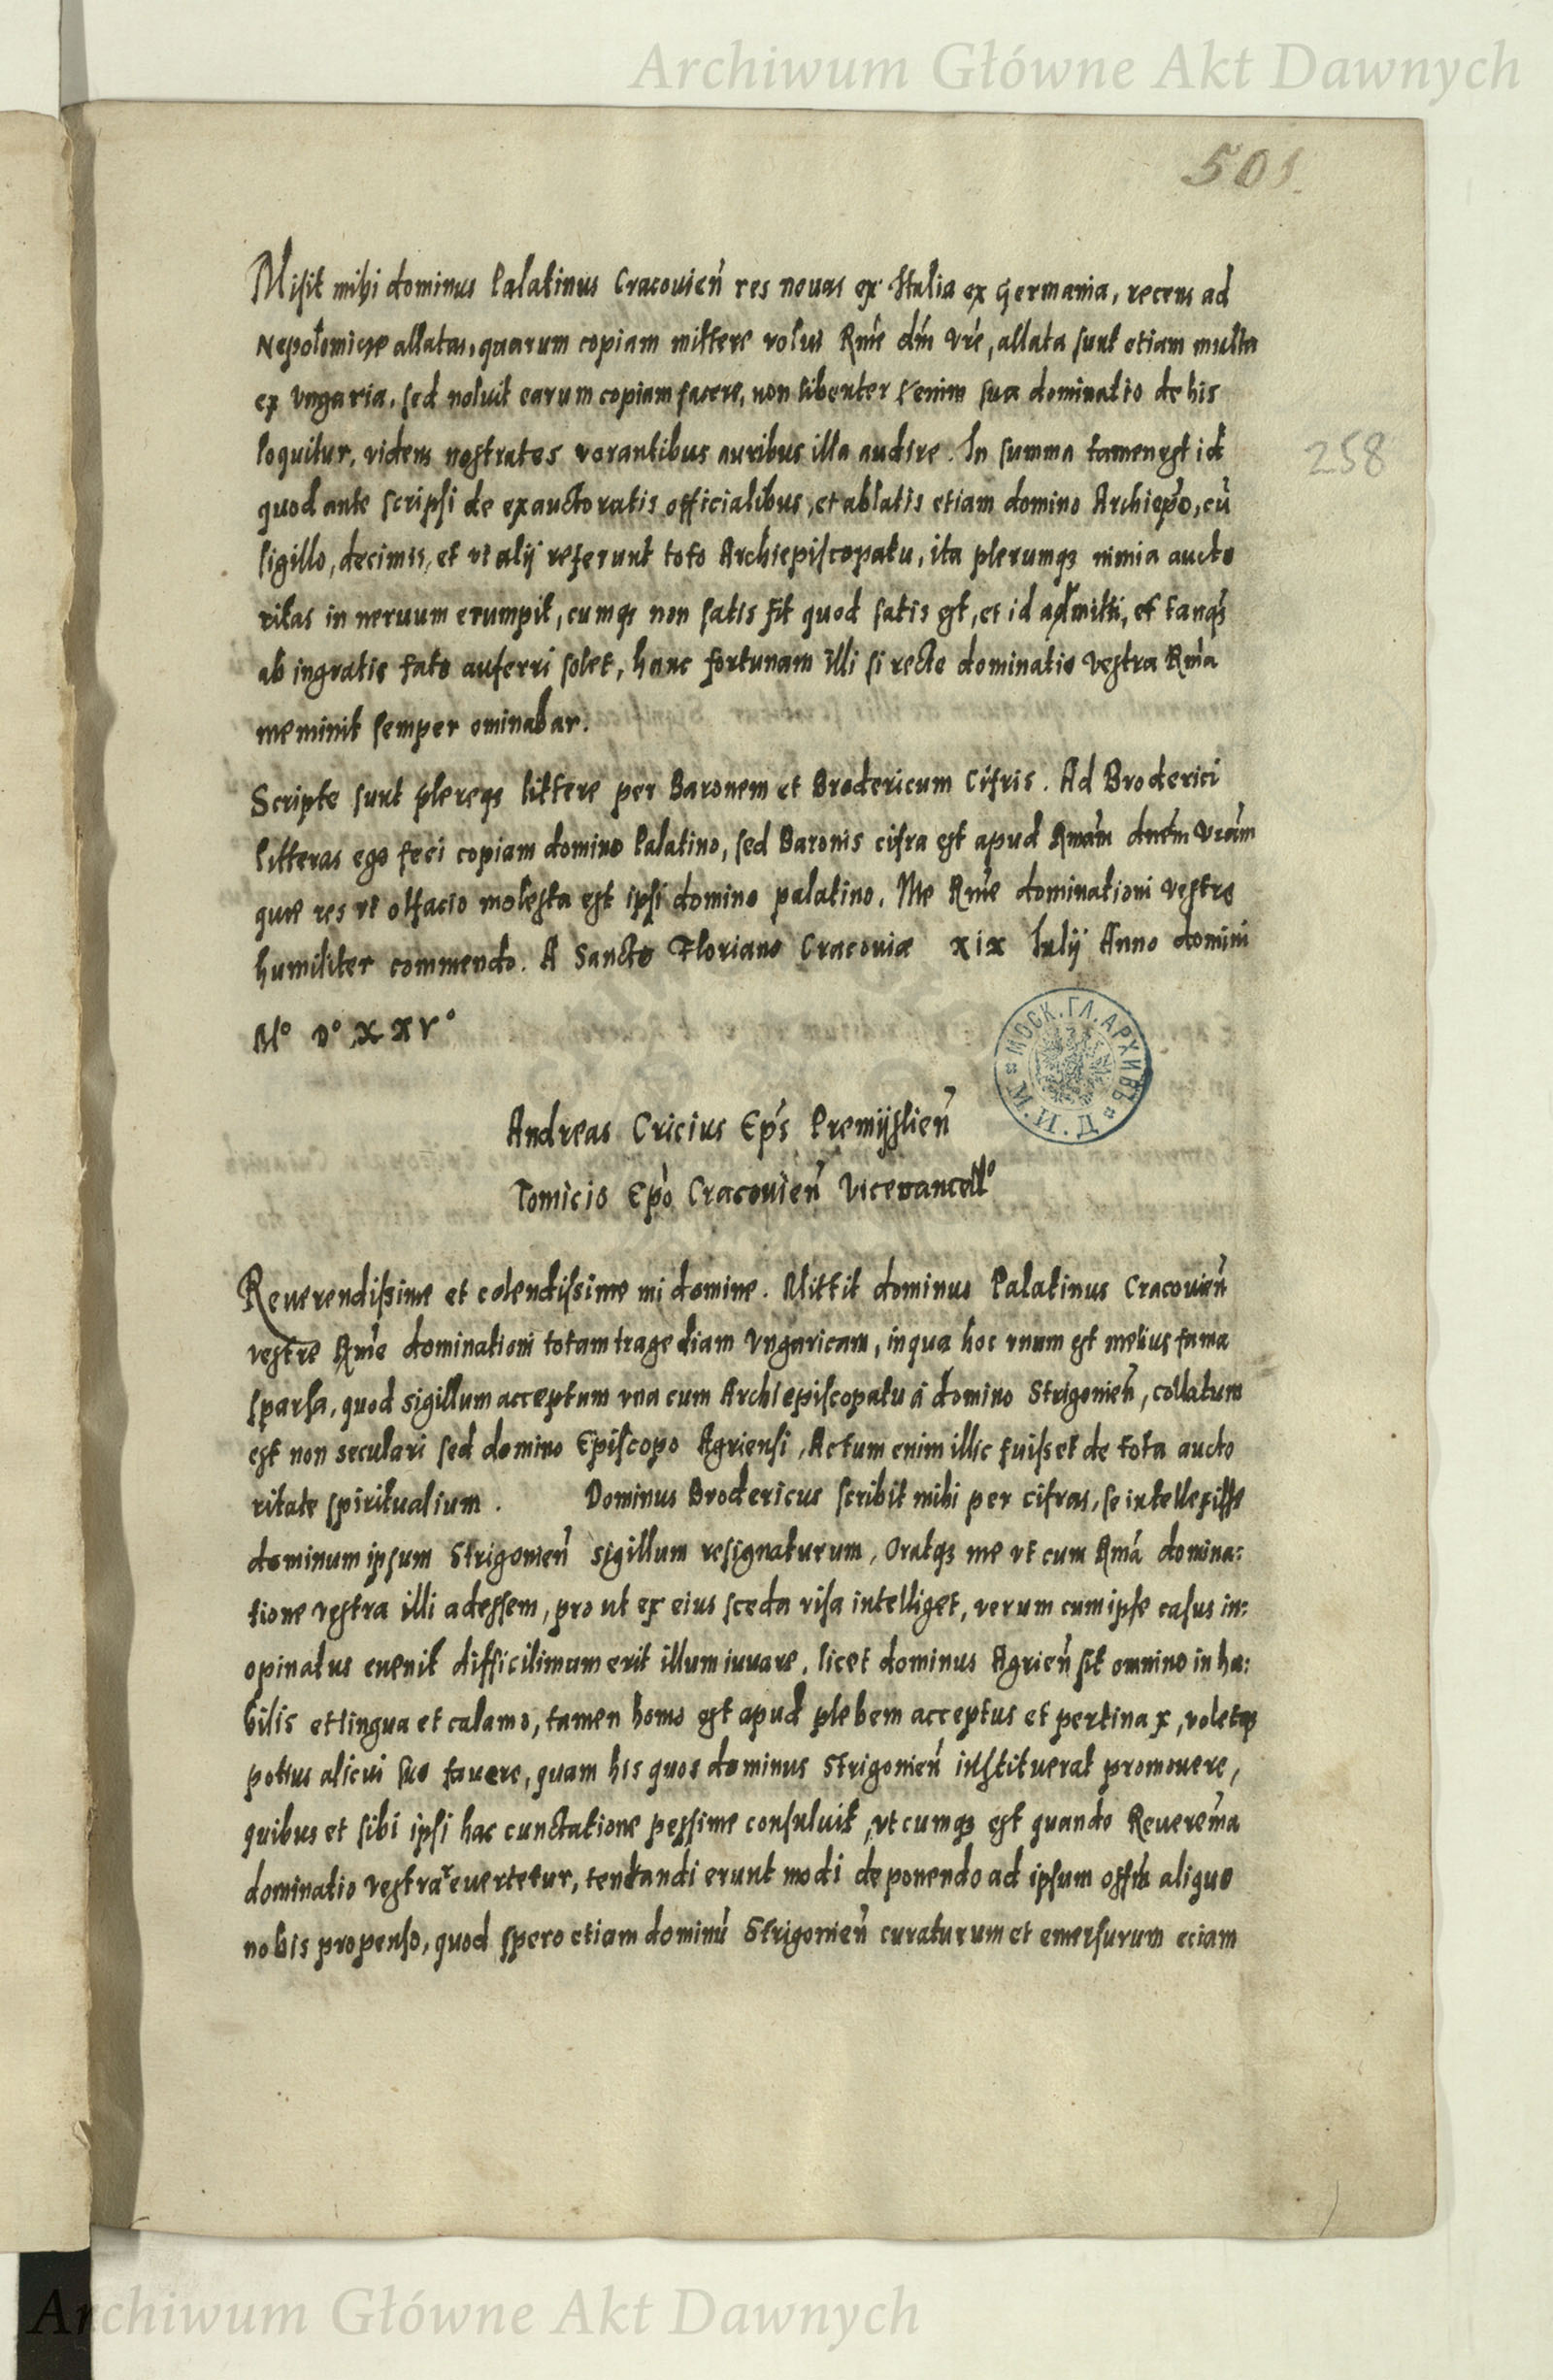 Archiwum Główne Akt Dawnych
501.
Misit mihi dominus Palatinus Cracouieñ res nouas ex Italia ex Germania, recens ad
Nepolomicze allatas, quarum copiam mittere volui Rme dm vre, allata sunt etiam multa
ex Vngaria, sed noluit earum copiam facere, non libenter enim sua dominatio de his
loquitur, videns nostrates vorantibus auribus illa audire. In summa tamen est id
258
quod ante scripsi de exauctoratis officialibus, et ablatis etiam domino Archiepo, cu
sigillo, decimis, et vt alij referunt toto Archiepiscopatu, ita plerumqs nimia aucto
ritas in neruum erumpit, cumqs non satis fit quod satis est, et id admitti, et tanqs
ab ingratis fato auferri solet, hanc fortunam illi si recte dominatio vestra Rma
meminit semper ominabar.
Scripte sunt plereqs littere per Baronem et Brodericum Cifris. Ad Broderici
litteras ego feci copiam domino Palatino, sed Baronis cifra est apud Rmam dnem vram
que res vt olfacio molesta est ipsi domino palatino. Me Rme dominationi vestre
humiliter commendo. A Sancto Floriano Cracouiæ xix Iulij Anno domini
Mº Dº XXVº
МОСК. ГЛ. АРХИВЪ М. И. Д.
Andreas Cricius Eps Premijslieñ
Tomicio Epo Cracouieñ Vicecancellº
Reuerendissime et colendissime mi domine. Mittit dominus Palatinus Cracouieñ
vestre Rme dominationi totam tragediam Vngaricam, in qua hoc vnum est melius fama
sparsa, quod sigillum acceptum vna cum Archiepiscopatu á domino Strigonieñ, collatum
est non seculari sed domino Episcopo Agriensi, Actum enim illic fuisset de tota aucto
ritate spiritualium. Dominus Brodericus scribit mihi per cifras, se intellexisse
dominum ipsum Strigonieñ sigillum resignaturum, Oratqs me vt cum Rma domina:
tione vestra illi adessem, pro ut ex eius sceda visa intelliget, verum cum ipse casus in:
opinatus euenit difficilimum erit illum iuuare, licet dominus Agrieñ sit omnino inha:
bilis et lingua et calamo, tamen homo est apud plebem acceptus et pertinax, voletqs
potius alicui suo fauere, quam his quos dominus Strigonieñ instituerat promouere,
quibus et sibi ipsi hac cunctatione pessime consuluit, vtcumqs est quando Reuerema
dominatio vestra reuertetur, tentandi erunt modi de ponendo ad ipsum offm aliquo
nobis propenso, quod spero etiam dominu Strigonieñ curaturum et emersurum eciam
Archiwum Główne Akt Dawnych